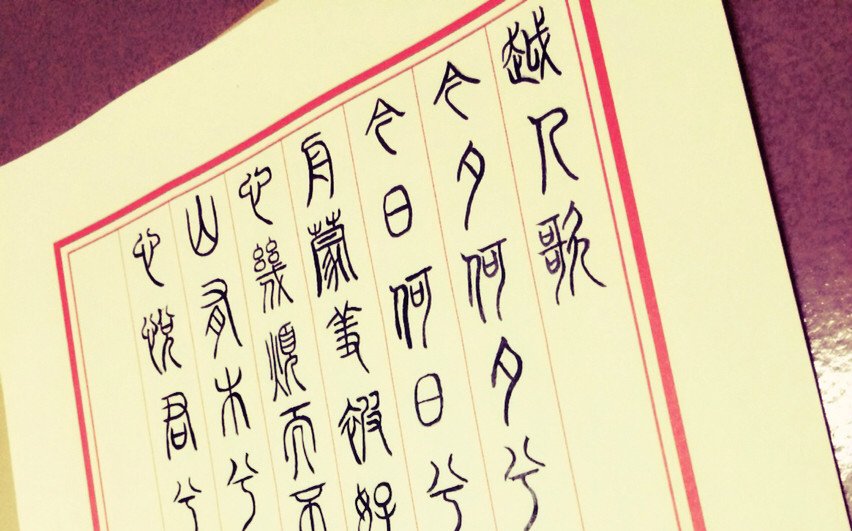 越人歌
今夕何夕兮
今日何日兮
舟蒙羞被好
心幾煩而不
山有木兮
心悅君兮